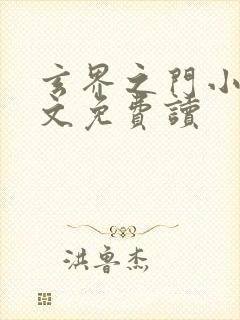 玄界之門小
文免費讀
洪魯杰